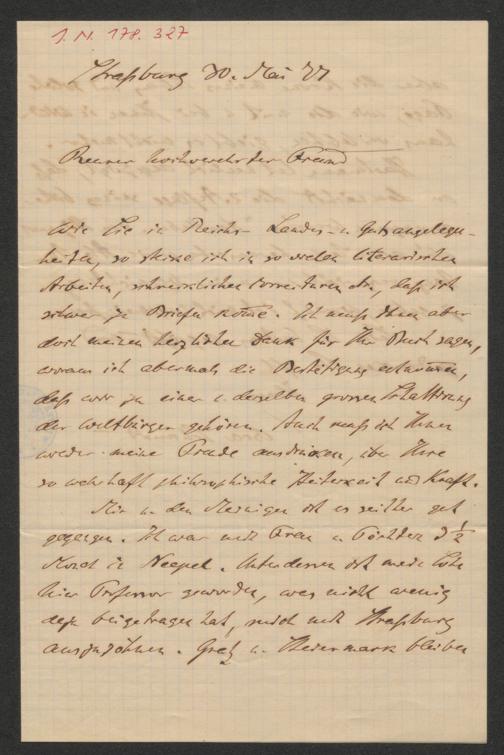 I. N. 178.327
Straßburg 30. Mai 77
Teurer hochverehrter Freund
Wie Sie in Reichs- Landes- u. Gutsangelegen-
heiten, so stecke ich in so vielen literarischen
Arbeiten, schrecklichen Correcturen etc, daß ich
schwer zu Briefen kome. Ich muß Ihnen aber
doch meinen herzlichen Dank für Ihr Buch sagen,
woraus ich abermals die Bestätigung entnommen,
daß wir zu einer u. derselben grossen Schattirung
der Weltbürger gehören. Auch muß ich Ihnen
wieder meine Freude ausdrücken, über Ihre
so wahrhaft philosophische Heiterkeit und Kraft.
Mir u. den Meinigen ist es seither gut
gegangen. Ich war mit Frau u. Töchter 3 ½
Monat in Neapel. Unterdessen ist mein Sohn
hier Professor geworden, was nicht wenig
dazu beigetragen hat, mich mit Straßburg
auszusöhnen. Gratz u. Steiermark bleiben